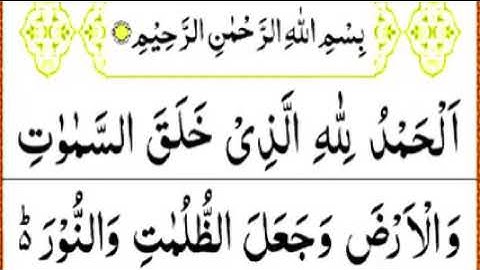 بِسْمِ اللهِ الرَّحْمٰنِ الرَّحِيْمِ
اَلْحَمْدُ لِلّٰهِ الَّذِىْ خَلَقَ السَّمٰوٰتِ
وَالْاَرْضَ وَجَعَلَ الظُّلُمٰتِ وَالنُّوْرَ ؕ